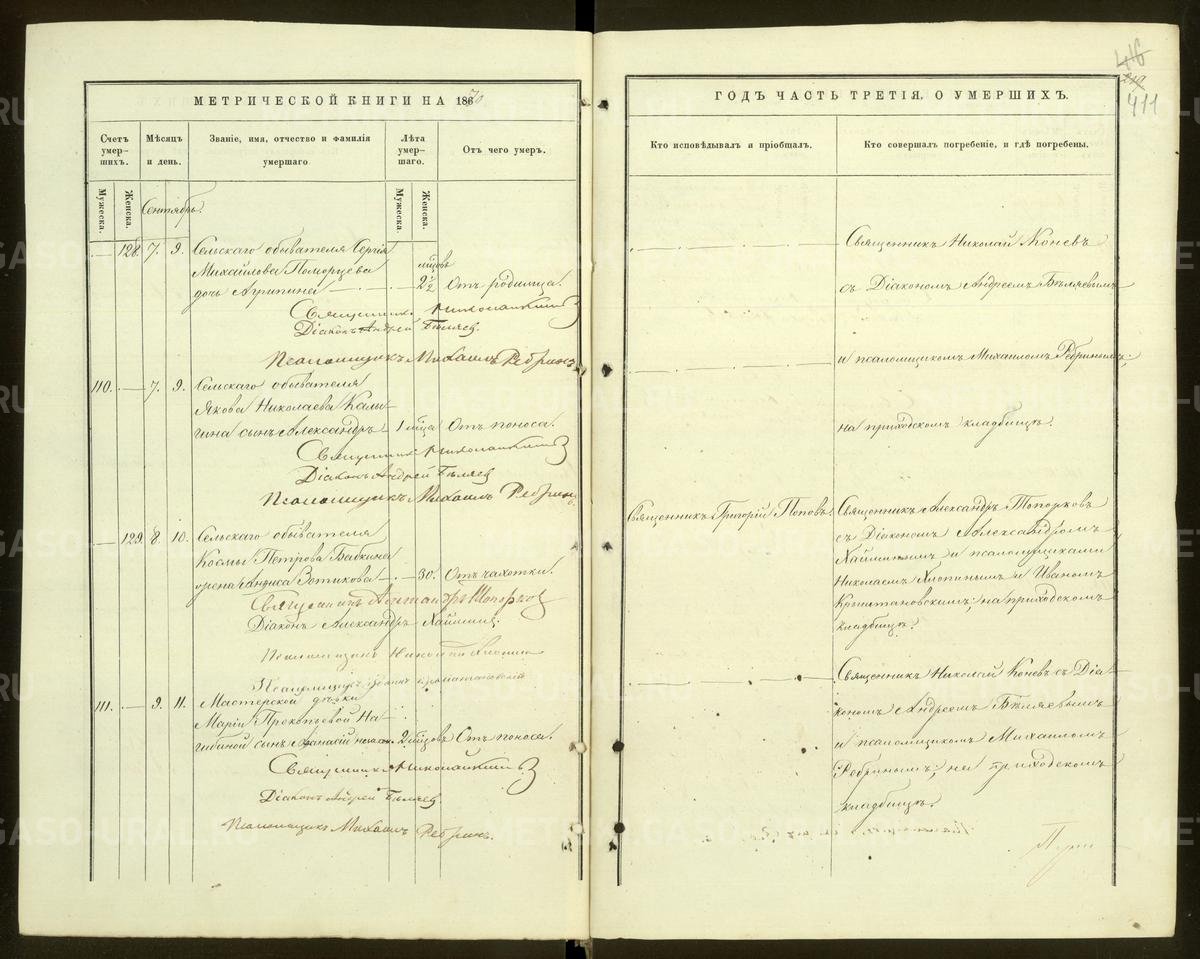 МЕТРИЧЕСКОЙ КНИГИ НА 1870
Счетъ умер-шихъ.
Мѣсяцъ и день.
Званіе, имя, отчество и фамилія умершаго
Лѣта умер-шаго.
Отъ чего умеръ.
Мужеска.
Женска.
Мужеска.
Женска.
Сентябрь.
128. 7. 9. Сельскаго обывателя Сергія
Михайлова Поморцева
дочь Агрипина мцовъ 2½ Отъ родимца.
Священникъ Николай Коневъ
Діаконъ Андрей Бѣляевъ.
Псаломщикъ Михаилъ Ребринъ
110. 7. 9. Сельскаго обывателя
Якова Николаева Калы-
гина сынъ Александръ 1 мца Отъ поноса.
Священникъ Николай Коневъ
Діаконъ Андрей Бѣляевъ
Псаломщикъ Михаилъ Ребринъ.
129. 8. 10. Сельскаго обывателя
Космы Петрова Бабкина
жена Зотикова 30. Отъ чахотки.
Священникъ Александръ Топорковъ
Діаконъ Александръ
Псаломщикъ Николай Хлопинъ
Псаломщикъ Иванъ
111. 9. 11. Мастерской дѣвки
Маріи Прокопьевой На-
гибиной сынъ Афанасій 2 мцовъ Отъ поноса.
Священникъ Николай Коневъ
Діаконъ Андрей Бѣляевъ.
Псаломщикъ Михаилъ Ребринъ.
416
411
ГОДЪ ЧАСТЬ ТРЕТІЯ, О УМЕРШИХЪ.
Кто исповѣдывалъ и пріобщалъ.
Кто совершалъ погребеніе, и гдѣ погребены.
Священникъ Николай Коневъ
съ Діакономъ Андреемъ Бѣляевымъ
и псаломщикомъ Михаиломъ Ребринымъ;
на приходскомъ кладбищѣ.
Священникъ Григорій Поповъ.
Священникъ Александръ Топорковъ
съ Діакономъ Александромъ
и псаломщиками
Николаемъ Хлопинымъ и Иваномъ
на приходскомъ
кладбищѣ.
Священникъ Николай Коневъ съ Діа-
кономъ Андреемъ Бѣляевымъ
и псаломщикомъ Михаиломъ
Ребринымъ; на приходскомъ
кладбищѣ.